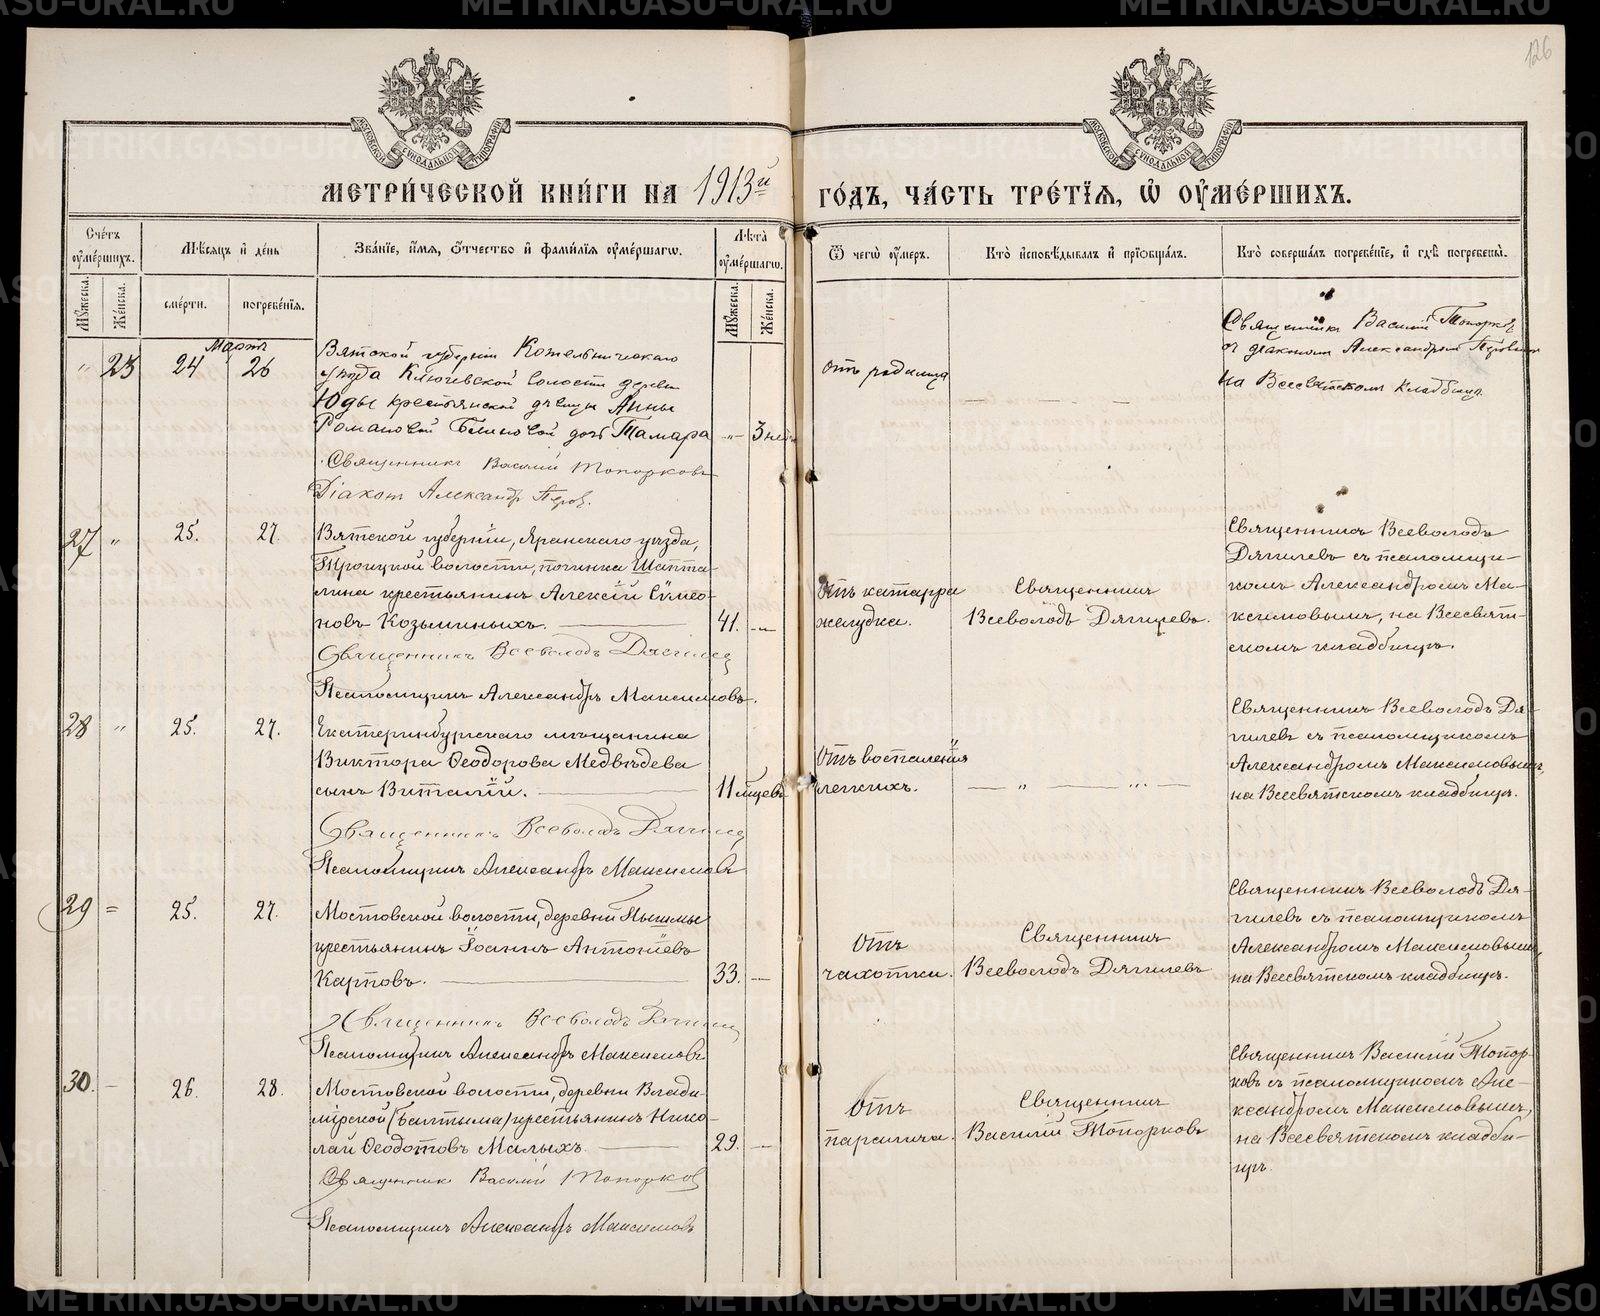 126
МОСКОВСКОЙ СѴНОДАЛЬНОЙ ТИПОГРАФІИ
МОСКОВСКОЙ СѴНОДАЛЬНОЙ ТИПОГРАФІИ
МЕТРИ́ЧЕСКОЙ КНИ́ГИ НА 1913й
ГО́ДЪ, ЧА́СТЬ ТРЕ́ТІѦ, Ѽ ОУ҆МЕ́РШИХЪ.
Сче́тъ оу҆ме́ршихъ.
Мѣ́сяцъ и҆ де́нь
Зва́нїе, и҆́мя, ѻ҆́тчество и҆ фами́лїя оу҆ме́ршагѡ.
Лѣ́та оу҆ме́ршагѡ.
Ѿ чегѡ̀ оу҆́меръ.
Кто̀ и҆сповѣ́дывалъ и҆ прїѡбща́лъ.
Кто̀ соверша́лъ погребе́нїе, и҆ гдѣ̀ погребены̀.
Му́жеска.
Же́нска.
сме́рти.
погребе́нїя.
Му́жеска.
Же́нска.
Мартъ
" 23 24 26
Вятской губерніи Котельническаго
уѣзда Ключевской волости дерев.
Юды крестьянской дѣвицы Анны
Романовой Блиновой дочь Тамара
-"- 3 нед.
Священникъ Василій Топорковъ
Діаконъ Александр Перов.
отъ родимца
— — —
Священникъ Василій Топорков
с діакономъ Александромъ Перовым
на Всесвятском кладбищѣ.
27 " 25. 27.
Вятской губерніи, Яранскаго уѣзда,
Троицкой волости, починка Шапта-
лина крестьянинъ Алексій Симео-
новъ Козьминыхъ.
41. -"-
Священникъ Всеволодъ Дягилев
Псаломщикъ Александръ Максимовъ.
Отъ катарра
желудка.
Священникъ
Всеволодъ Дягилевъ.
Священникъ Всеволодъ
Дягилевъ съ псаломщи-
комъ Александромъ Ма-
ксимовымъ, на Всесвят-
скомъ кладбищѣ.
28 " 25. 27.
Екатеринбургскаго мѣщанина
Виктора Ѳеодорова Медвѣдева
сынъ Виталій.
11 мѣсцевъ
Священникъ Всеволодъ Дягилев
Псаломщикъ Александръ Максимовъ
Отъ воспаленія
легкихъ.
— " — "· —
Священникъ Всеволодъ Дя-
гилевъ съ псаломщикомъ
Александромъ Максимовымъ,
на Всесвятскомъ кладбищѣ.
29 = 25. 27.
Мостовской волости, деревни Пышмы
крестьянинъ Іоаннъ Антоніевъ
Картовъ.
33. —
Священникъ Всеволодъ Дягилев
Псаломщикъ Александръ Максимовъ
Отъ
чахотки.
Священникъ
Всеволодъ Дягилевъ
Священникъ Всеволодъ Дя-
гилевъ съ псаломщикомъ
Александромъ Максимовымъ,
на Всесвятскомъ кладбищѣ.
30. - 26. 28.
Мостовской волости, деревни Влади-
мірской (Балтыма) крестьянинъ Нико-
лай Ѳеодотовъ Малыхъ.
29. —
Священник Василій Топорков
Псаломщикъ Александръ Максимовъ
Отъ
паралича.
Священникъ
Василій Топорковъ
Священникъ Василій Топор-
ковъ съ псаломщикомъ Але-
ксандромъ Максимовымъ,
на Всесвятскомъ кладби-
щѣ.
METRIKI.GASO-URAL.RU